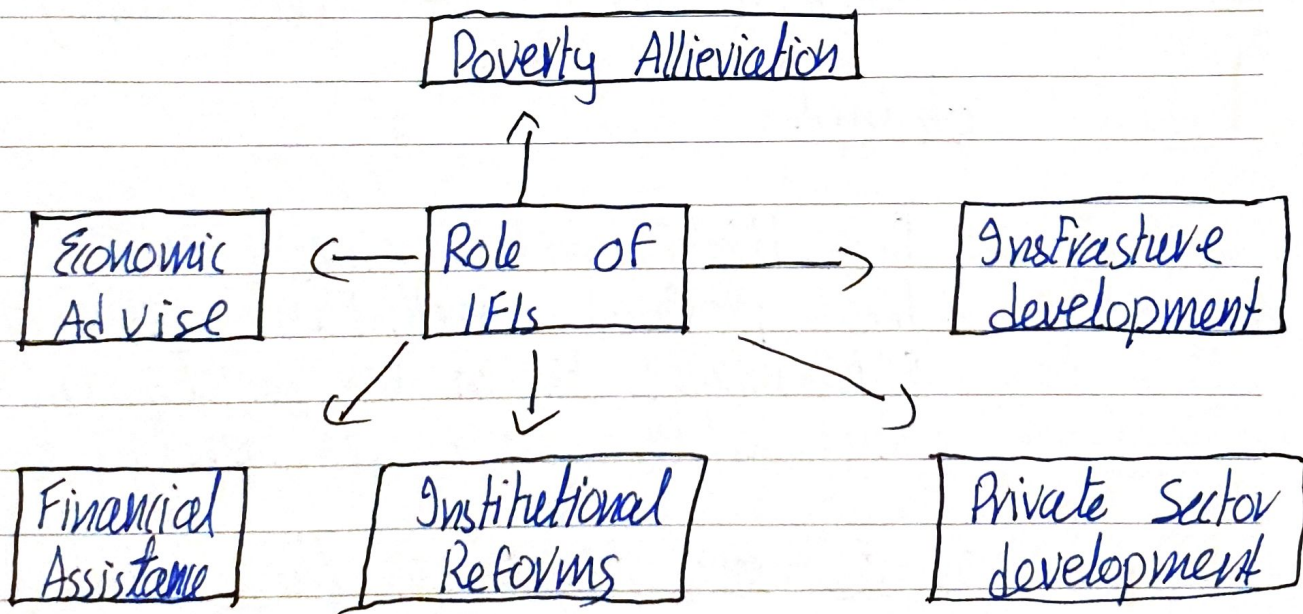 Poverty Allieviation
Economic
Advise
Role of
IFIs
Insfrasture
development
Financial
Assistance
Institutional
Reforms
Private Sector
development